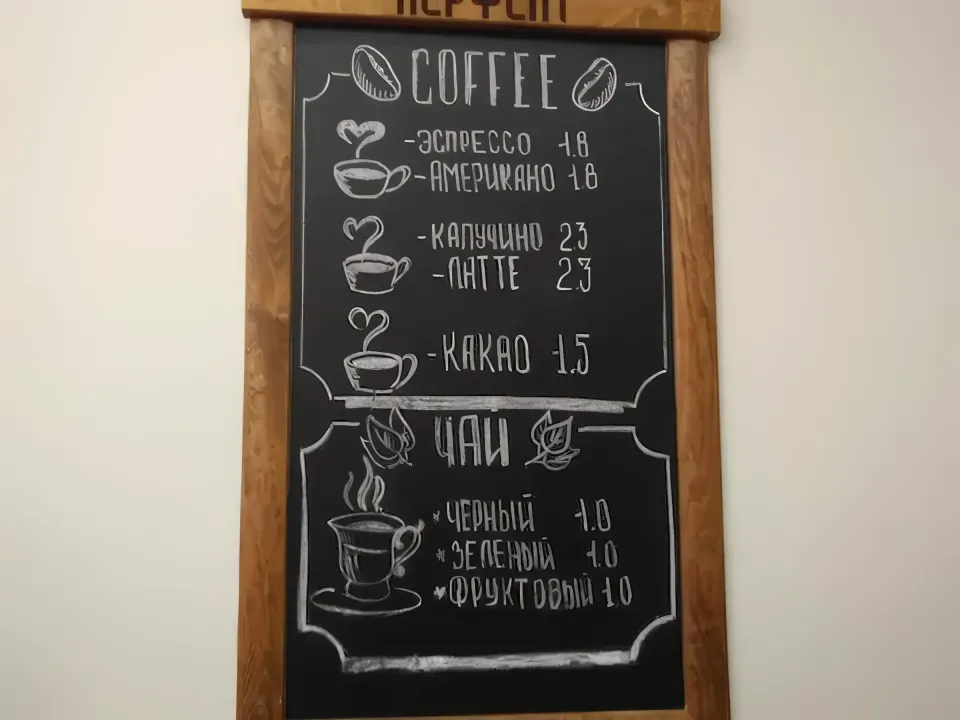 COFFEE
-ЭСПРЕССО 1.8
-АМЕРИКАНО 1.8
-КАПУЧИНО 2.3
-ЛАТТЕ 2.3
-КАКАО 1.5
ЧАЙ
*ЧЕРНЫЙ 1.0
*ЗЕЛЕНЫЙ 1.0
*ФРУКТОВЫЙ 1.0